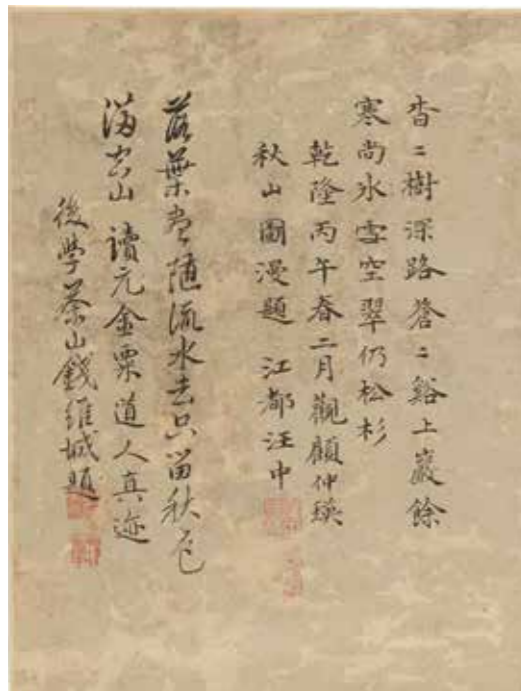 杳二樹深路蒼二谿上巖餘
寒尚氷雪空翠仍松杉
乾隆丙午春二月觀顧仲瑛
秋山圖漫題 江都汪中
落葉盡隨流水去只留秋色
滿空山 讀元金粟道人真迹
後學茶山錢維城題